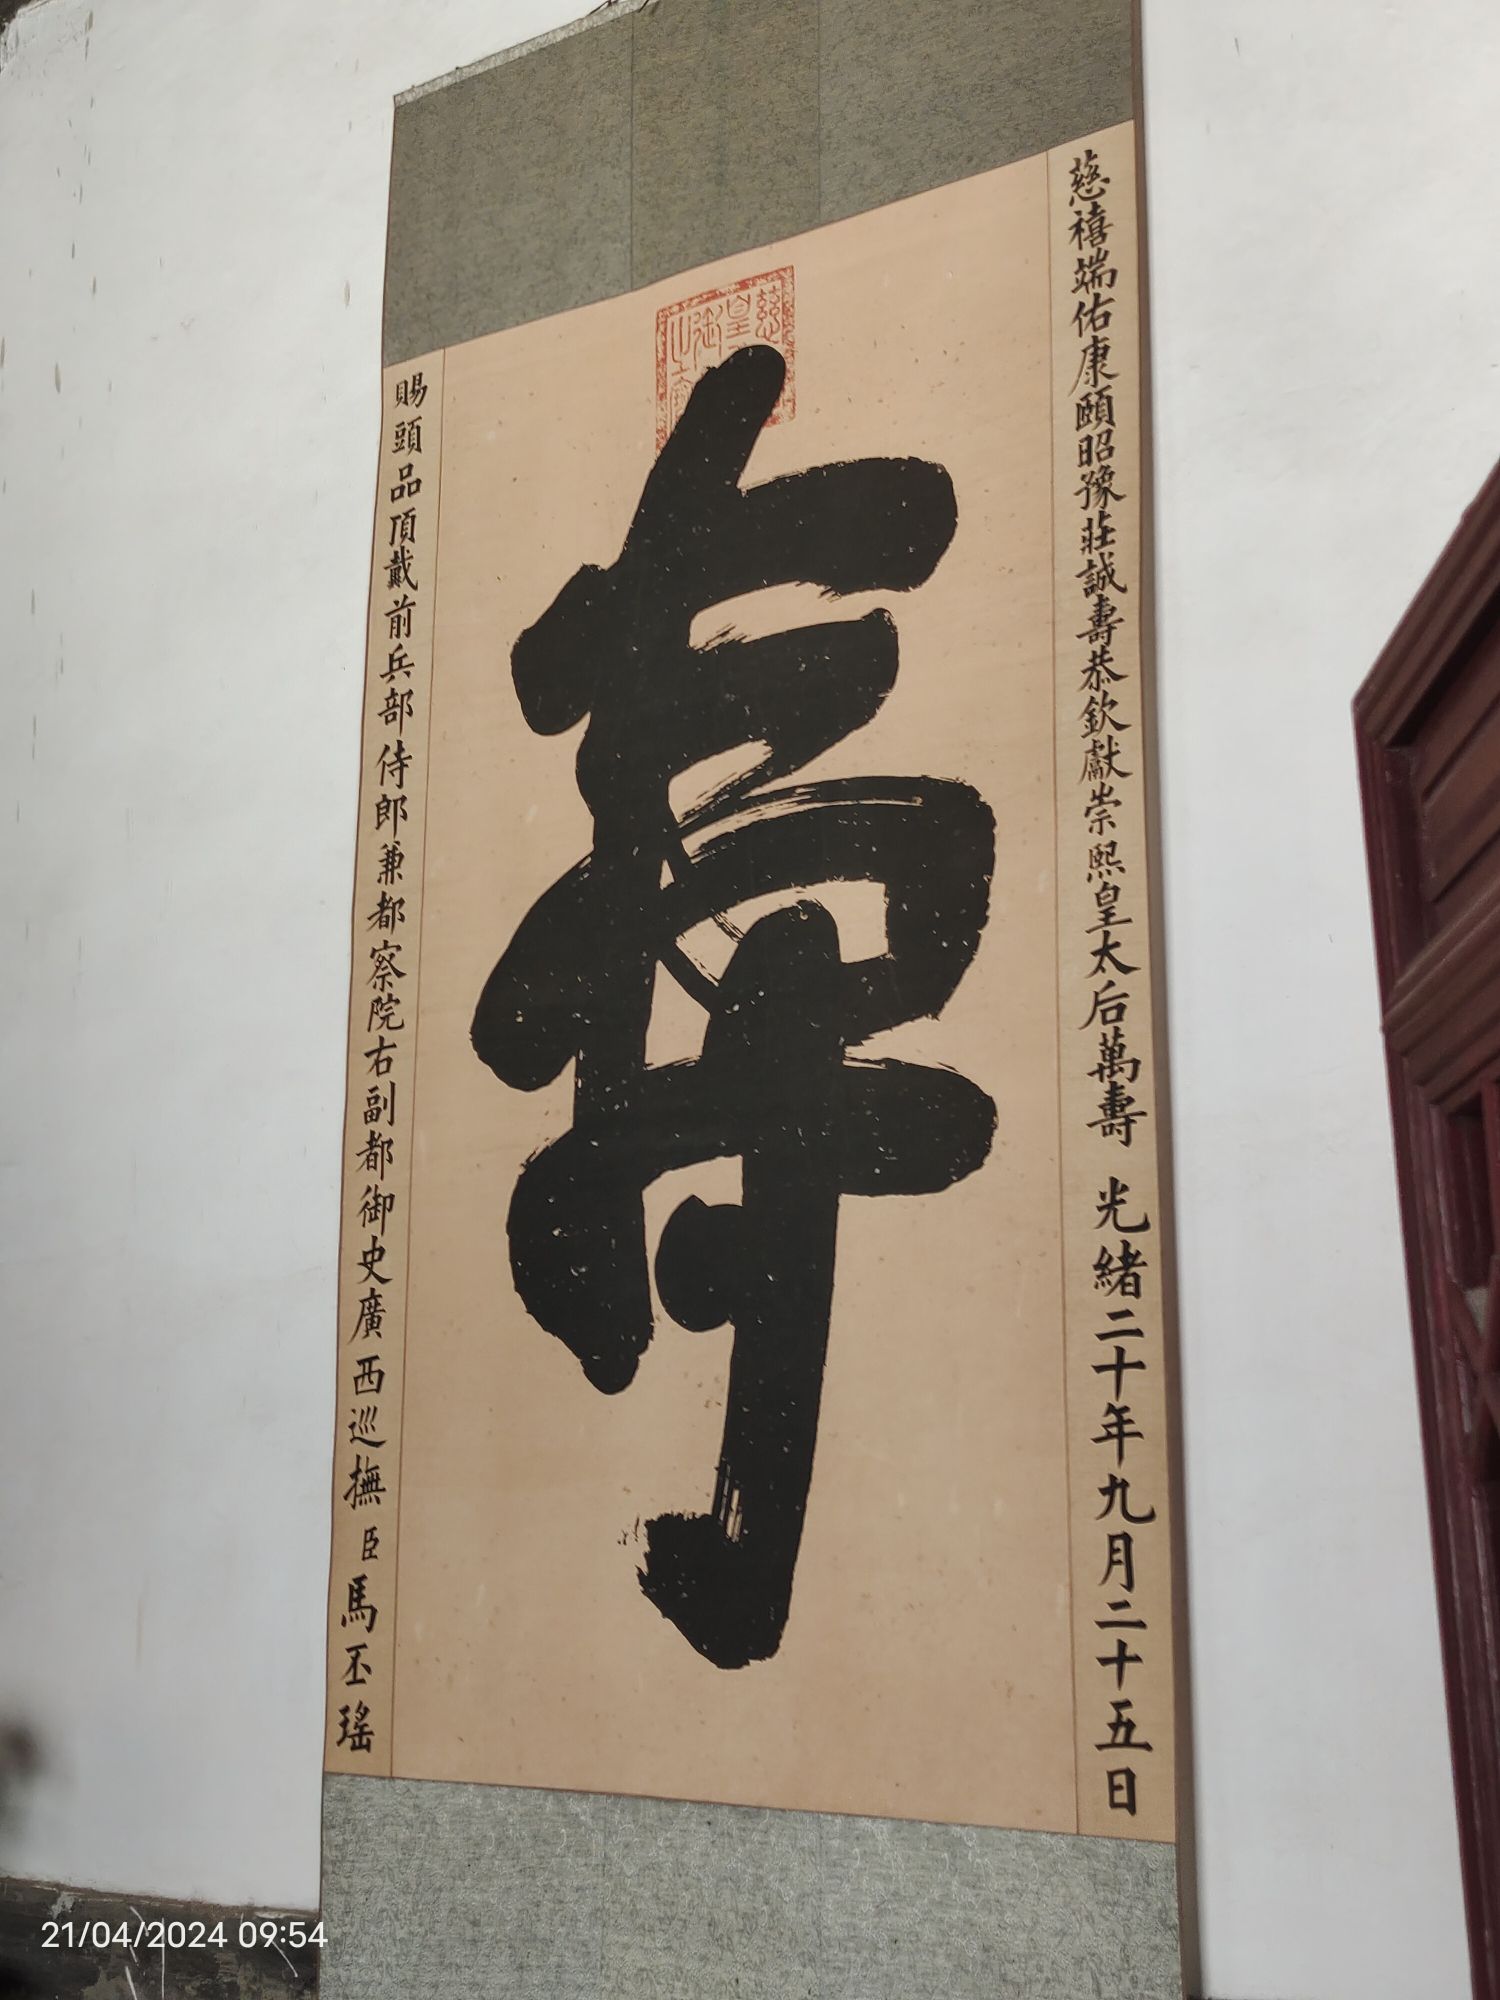 慈禧端佑康頤昭豫莊誠壽恭欽獻崇熙皇太后萬壽 光緒二十年九月二十五日
慈
皇
御
之
壽
賜頭品頂戴前兵部侍郎兼都察院右副都御史廣西巡撫臣馬丕瑤
21/04/2024 09:54